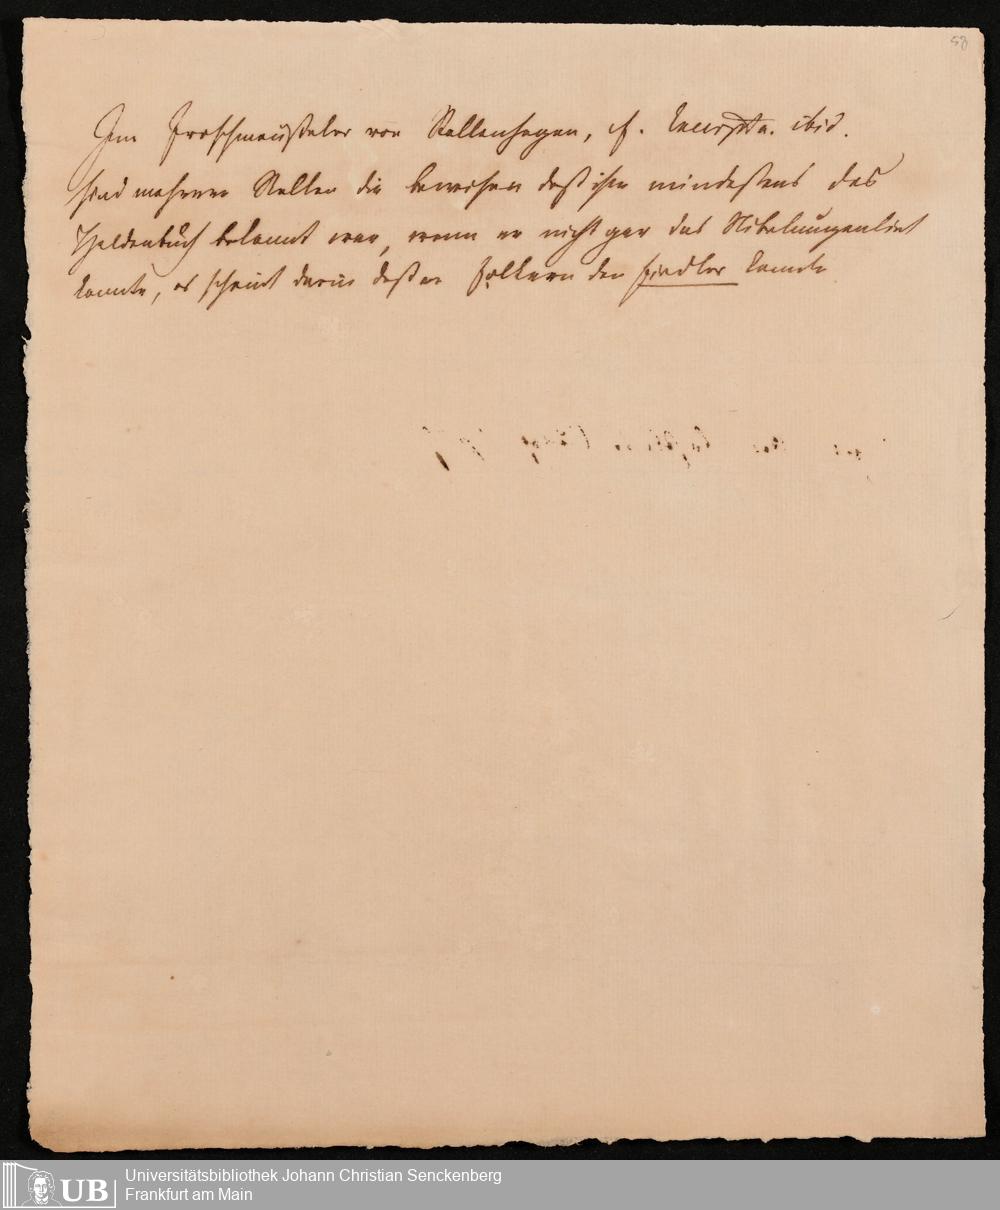 58
Im Froschmeuseler von Rollenhagen, cf. Excerpta. ibid.
sind mehrere Stellen die beweisen daß ihm mindestens das
Heldenbuch bekannt war, wenn er nicht gar das Nibelungenliet
kannte, es scheint darin daß er Folkern den fiedler kannte
Universitätsbibliothek Johann Christian Senckenberg
Frankfurt am Main
UB